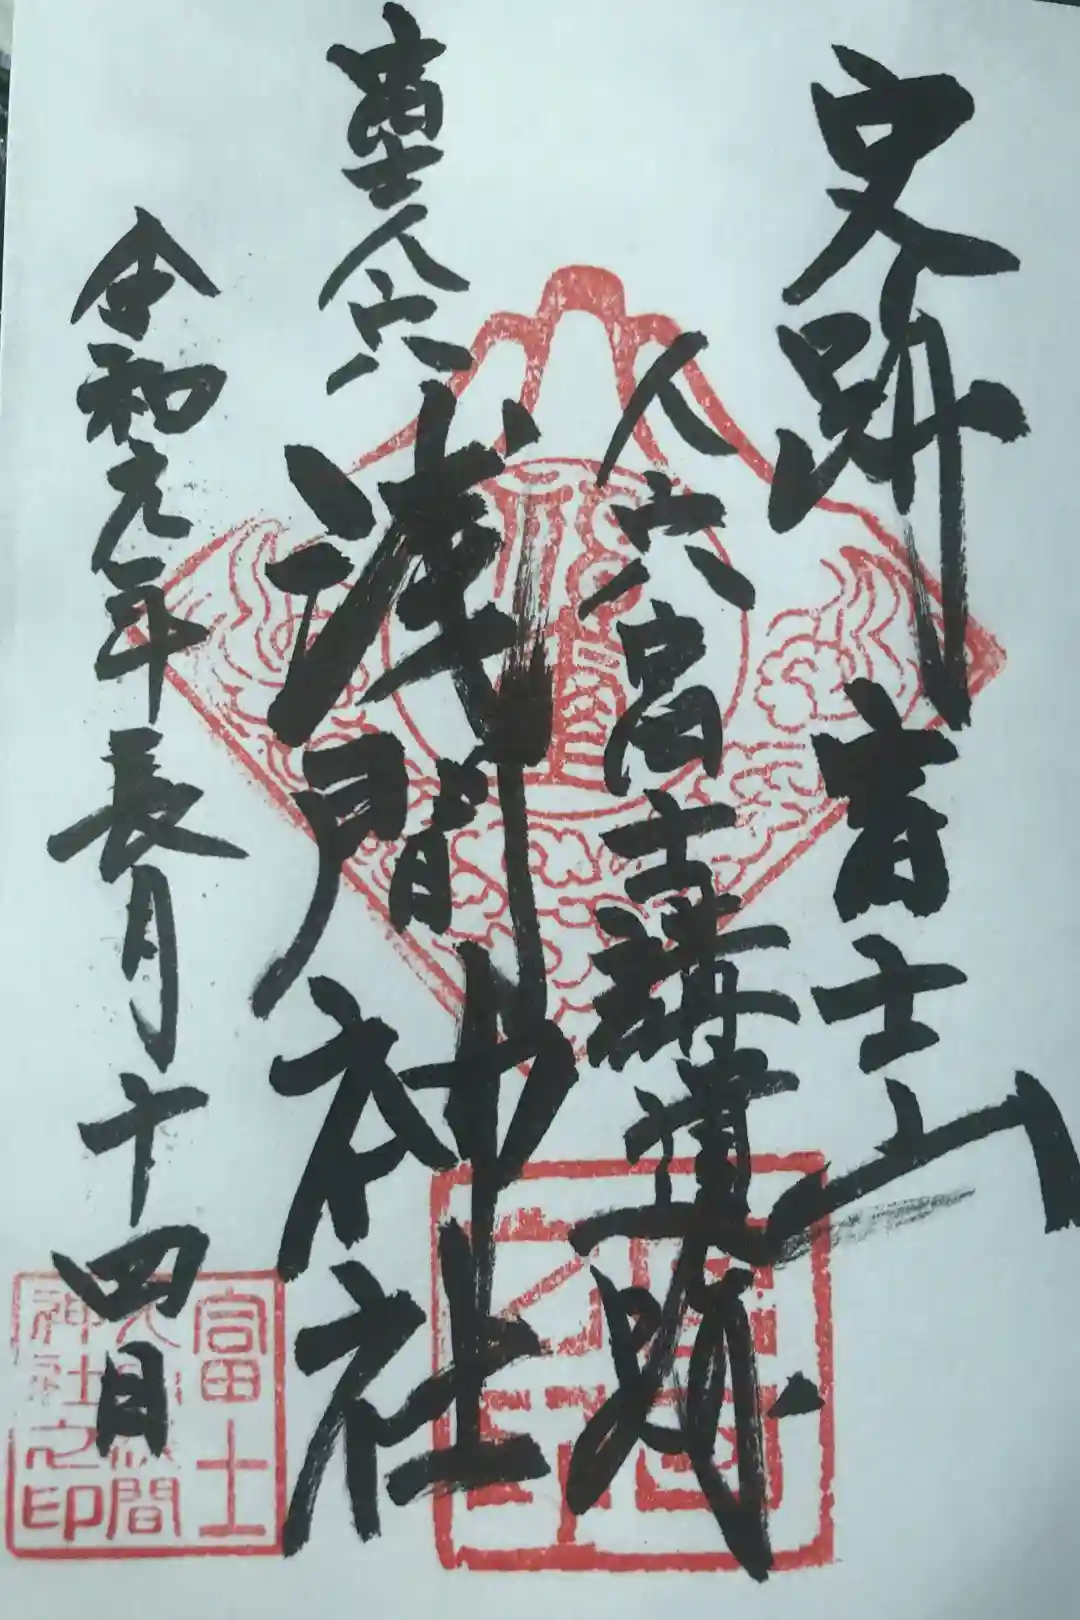 史跡 富士山
人穴富士講遺跡
富士人穴
浅間神社
令和元年長月十四日
富士
人穴浅間
神社之印